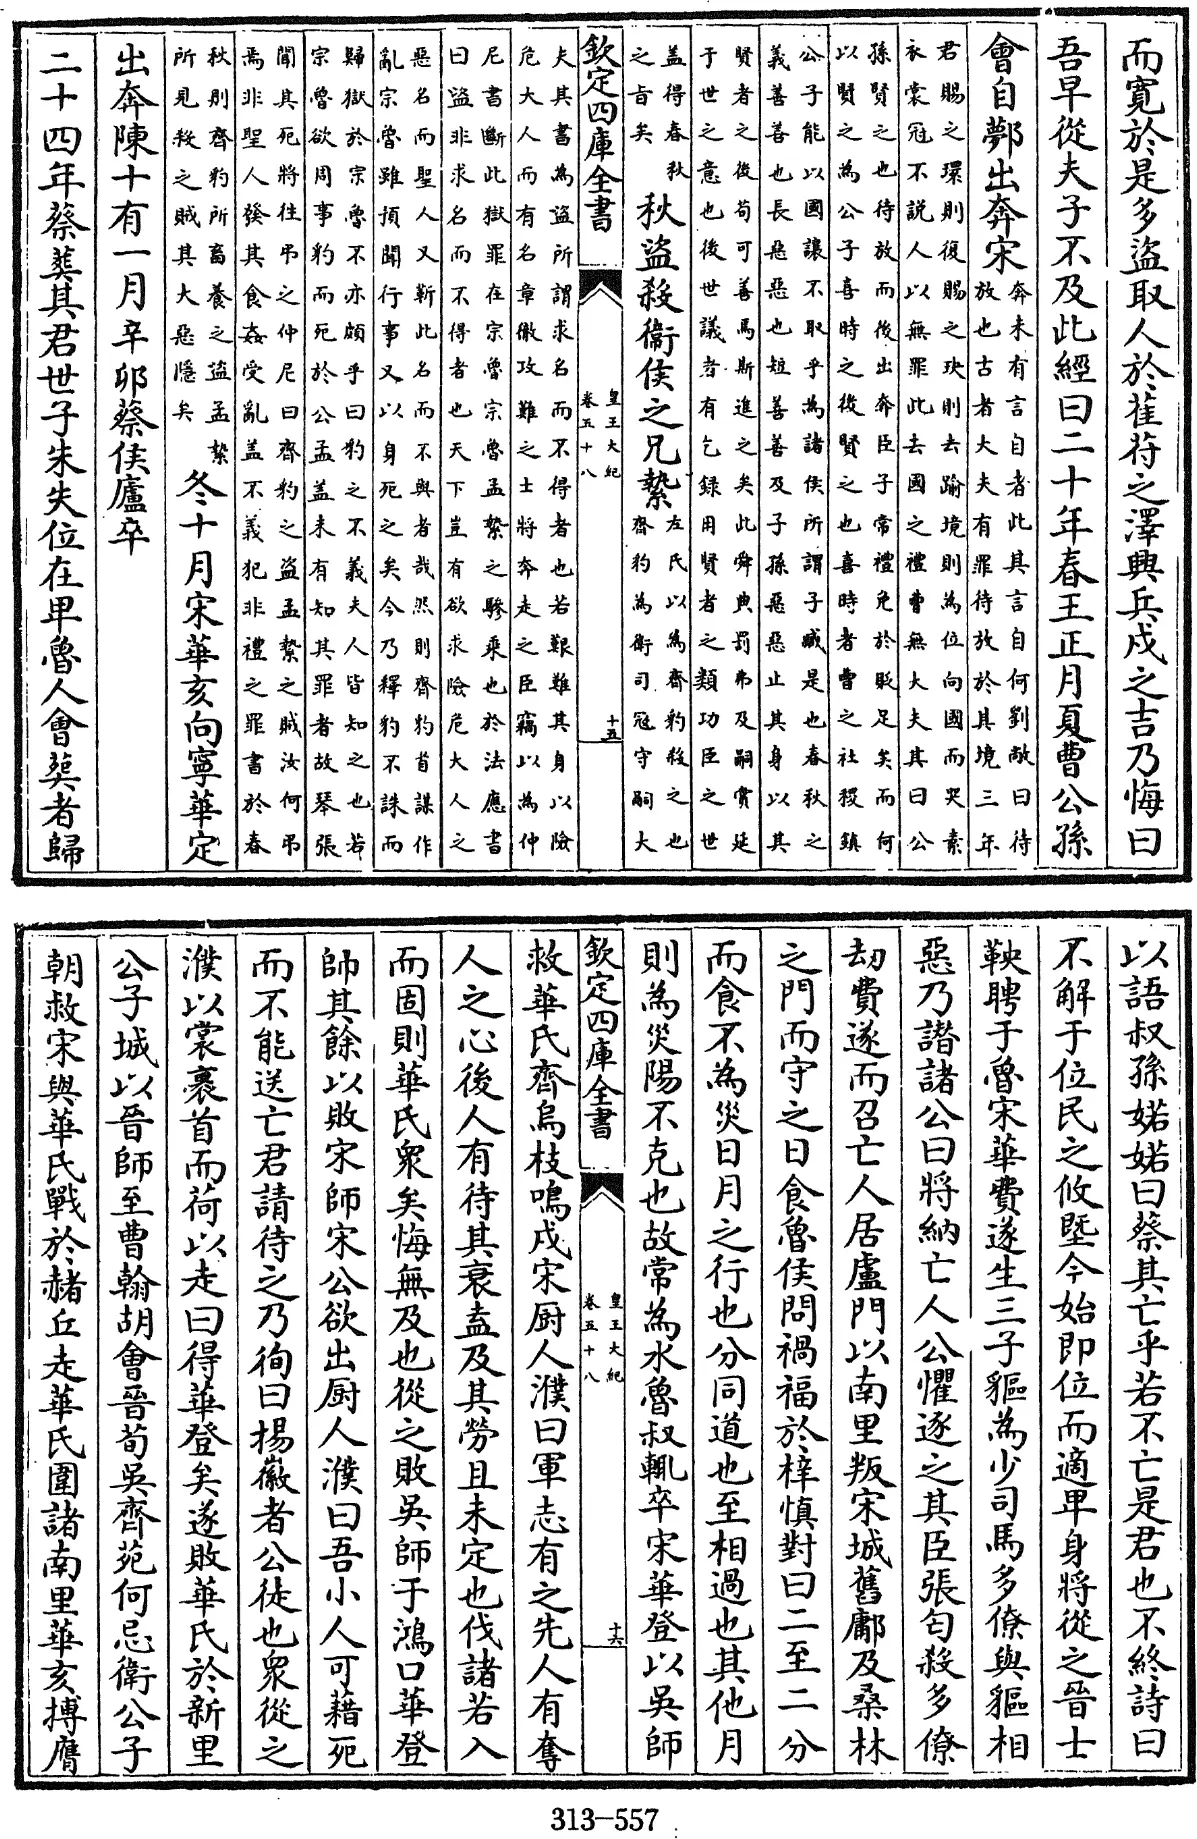 而寛於是多盜取人於萑苻之澤興兵戍之吉乃悔曰
吾早從夫子不及此經曰二十年春王正月夏曹公孫
會自鄸出奔宋
奔未有言自者此其言自何劉敞曰待
放也古者大夫有罪待放於其境三年
君賜之環則復賜之玦則去踰境則為位向國而哭素
衣裳冠不説人以無罪此去國之禮曹無大夫其曰公
孫賢之也待放而後出奔臣子常禮免於貶足矣而何
以賢之為公子喜時之後賢之也喜時者曹之社稷鎮
公子能以國讓不取乎為諸侯所謂子臧是也春秋之
義善善也長惡惡也短善善及子孫惡惡止其身以其
賢者之後苟可善焉斯進之矣此舜典罰弗及嗣賞延
于世之意也後世議者有乞録用賢者之類功臣之世
盖得春秋
之旨矣
秋盜殺衞侯之兄縶
左氏以為齊豹殺之也
齊豹為衛司冦守嗣大
欽定四庫全書
皇王大紀
卷五十八
十五
夫其書為盜所謂求名而不得者也若艱難其身以險
危大人而有名章徹攻難之士將奔走之臣竊以為仲
尼書斷此獄罪在宗魯宗魯孟縶之驂乗也於法應書
曰盜非求名而不得者也天下豈有欲求險危大人之
惡名而聖人又靳此名而不與者哉然則齊豹首謀作
亂宗魯雖預聞行事又以身死之矣今乃釋豹不誅而
歸獄於宗魯不亦頗乎曰豹之不義夫人皆知之也若
宗魯欲周事豹而死於公孟盖未有知其罪者故琴張
聞其死將往弔之仲尼曰齊豹之盜孟縶之賊汝何弔
焉非聖人發其食姦受亂盖不義犯非禮之罪書於春
秋則齊豹所畜養之盜孟縶
所見殺之賊其大惡隱矣
冬十月宋華亥向寧華定
出奔陳十有一月辛卯蔡侯廬卒
二十四年蔡葬其君世子朱失位在卑魯人會葬者歸
以語叔孫婼婼曰蔡其亡乎若不亡是君也不終詩曰
不解于位民之攸墍今始即位而適卑身將從之晉士
鞅聘于魯宋華費遂生三子貙為少司馬多僚與貙相
惡乃譖諸公曰將納亡人公懼逐之其臣張匄殺多僚
刧費遂而召亡人居盧門以南里叛宋城舊鄘及桑林
之門而守之日食魯侯問禍福於梓慎對曰二至二分
而食不為災日月之行也分同道也至相過也其他月
則為災陽不克也故常為水魯叔輒卒宋華登以吳師
欽定四庫全書
皇王大紀
卷五十八
十六
救華氏齊烏枝鳴戍宋厨人濮曰軍志有之先人有奪
人之心後人有待其衰盍及其勞且未定也伐諸若入
而固則華氏衆矣悔無及也從之敗吳師于鴻口華登
帥其餘以敗宋師宋公欲出厨人濮曰吾小人可藉死
而不能送亡君請待之乃徇曰揚徽者公徒也衆從之
濮以裳裹首而荷以走曰得華登矣遂敗華氏於新里
公子城以晉師至曹翰胡會晉荀吳齊苑何忌衛公子
朝救宋與華氏戰於赭丘走華氏圍諸南里華亥搏膺
313-557